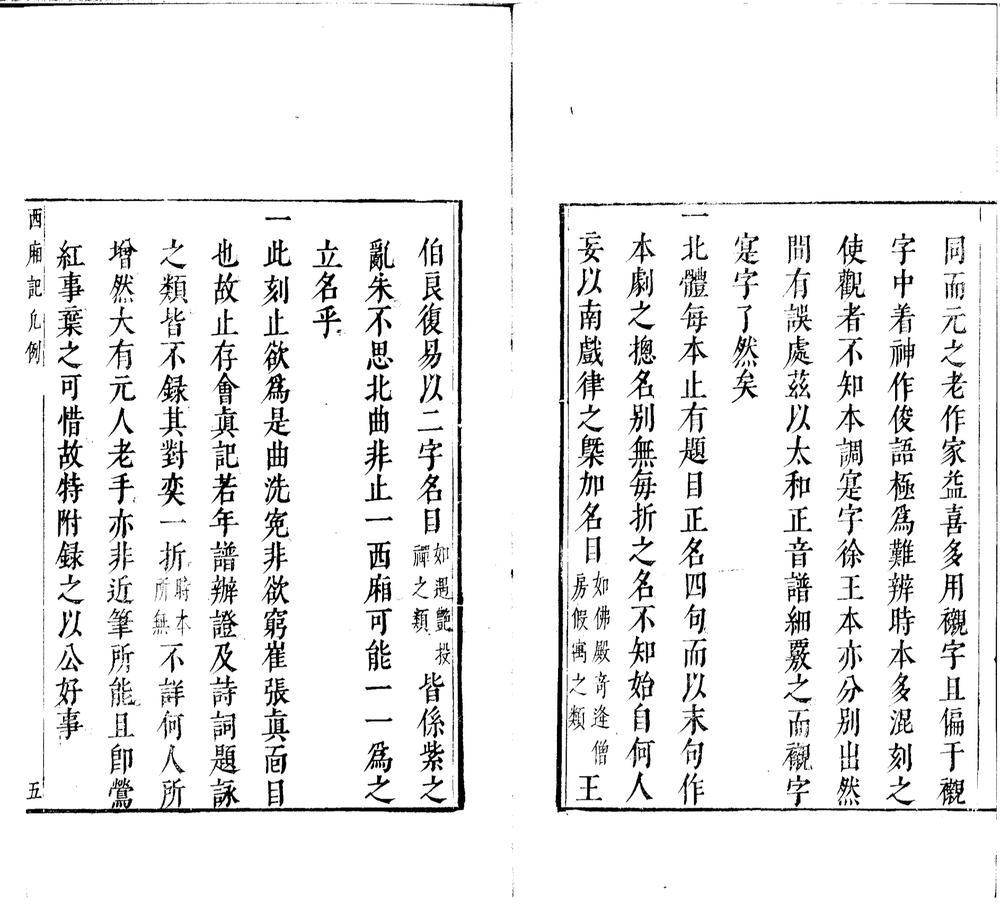 同而元之老作家益喜多用襯字且偏于襯
字中着神作俊語極爲難辨時本多混刻之
使觀者不知本調寔字徐王本亦分别出然
間有誤處兹以太和正音譜細覈之而襯字
寔字了然矣
一北體每本止有題目正名四句而以末句作
本劇之摠名别無每折之名不知始自何人
妄以南戲律之槩加名目如佛殿奇逢僧房假寓之類王
伯良復易以二字名目如遇艷投禪之類皆係紫之
亂朱不思北曲非止一西廂可能一一爲之
立名乎
一此刻止欲爲是曲洗寃非欲窮崔張眞面目
也故止存會眞記若年譜辦證及詩詞題詠
之類皆不録其對奕一折時本所無不詳何人所
增然大有元人老手亦非近筆所能且卽鶯
紅事葉之可惜故特附録之以公好事
西廂記凡例
五